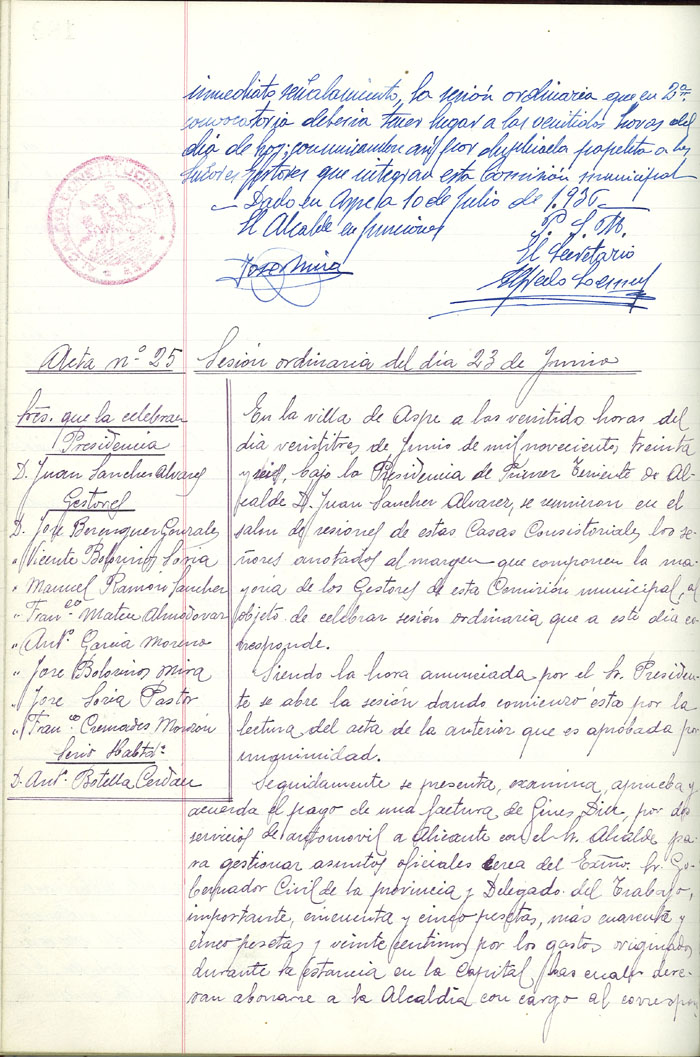 inmediato señalamiento, la sesión ordinaria que en 2ª
convocatoria debería tener lugar a las ventidos horas del
día de hoy; comunicandose así por duplicada papeleta a los
Señores Gestores que integran esta Comisión municipal
Dado en Aspe a 10 de Julio de 1.936
El Alcalde en funciones
P. S. M.
El Secretario
Jose Mira
Alfredo
ALCALDIA CONSTITUCIONAL
ASPE
Acta nº 25 Sesión ordinaria del día 23 de Junio
Sres. que la celebran
Presidencia
D. Juan Sanchez Alvarez
Gestores
D. Jose Berenguer Gonzalez
" Vicente Bolorinos Soria
" Manuel Ramon Sanchez
" Fran.co Mateu Almodovar
" Antº. Garcia Moreno
" Jose Bolorinos Mira
" Jose Soria Pastor
" Fran.co Cremades Monzón
Secrio Habtdo.
D. Antº. Botella Cerdan
En la villa de Aspe a las ventido horas del
día ventitres de Junio de mil novecientos treinta
y seis, bajo la Presidencia de Primer Teniente de Al-
calde D. Juan Sanchez Alvarez, se reunieron en el
salon de sesiones de estas Casas Consistoriales los se-
ñores anotados al margen que componen la ma-
yoria de los Gestores de esta Comisión municipal, al
objeto de celebrar sesión ordinaria que a este día co-
rresponde.
Siendo la hora anunciada por el Sr. Presiden-
te se abre la sesión dando comienzo ésta por la
lectura del acta de la anterior que es aprobada por
unanimidad.
Seguidamente se presenta, examina, aprueba y
acuerda el pago de una factura de Gines Diez, por dos
servicios de automovil a Alicante con el Sr. Alcalde pa-
ra gestionar asuntos oficiales cerca del Exmo. Sr. Go-
bernador Civil de la provincia y Delegado del Trabajo,
importante, cincuenta y cinco pesetas, más cuarenta y
cinco pesetas y veinte centimos por los gastos originados
durante la estancia en la Capital, las cuales debe-
ran abonarse a la Alcaldía con cargo al correspon